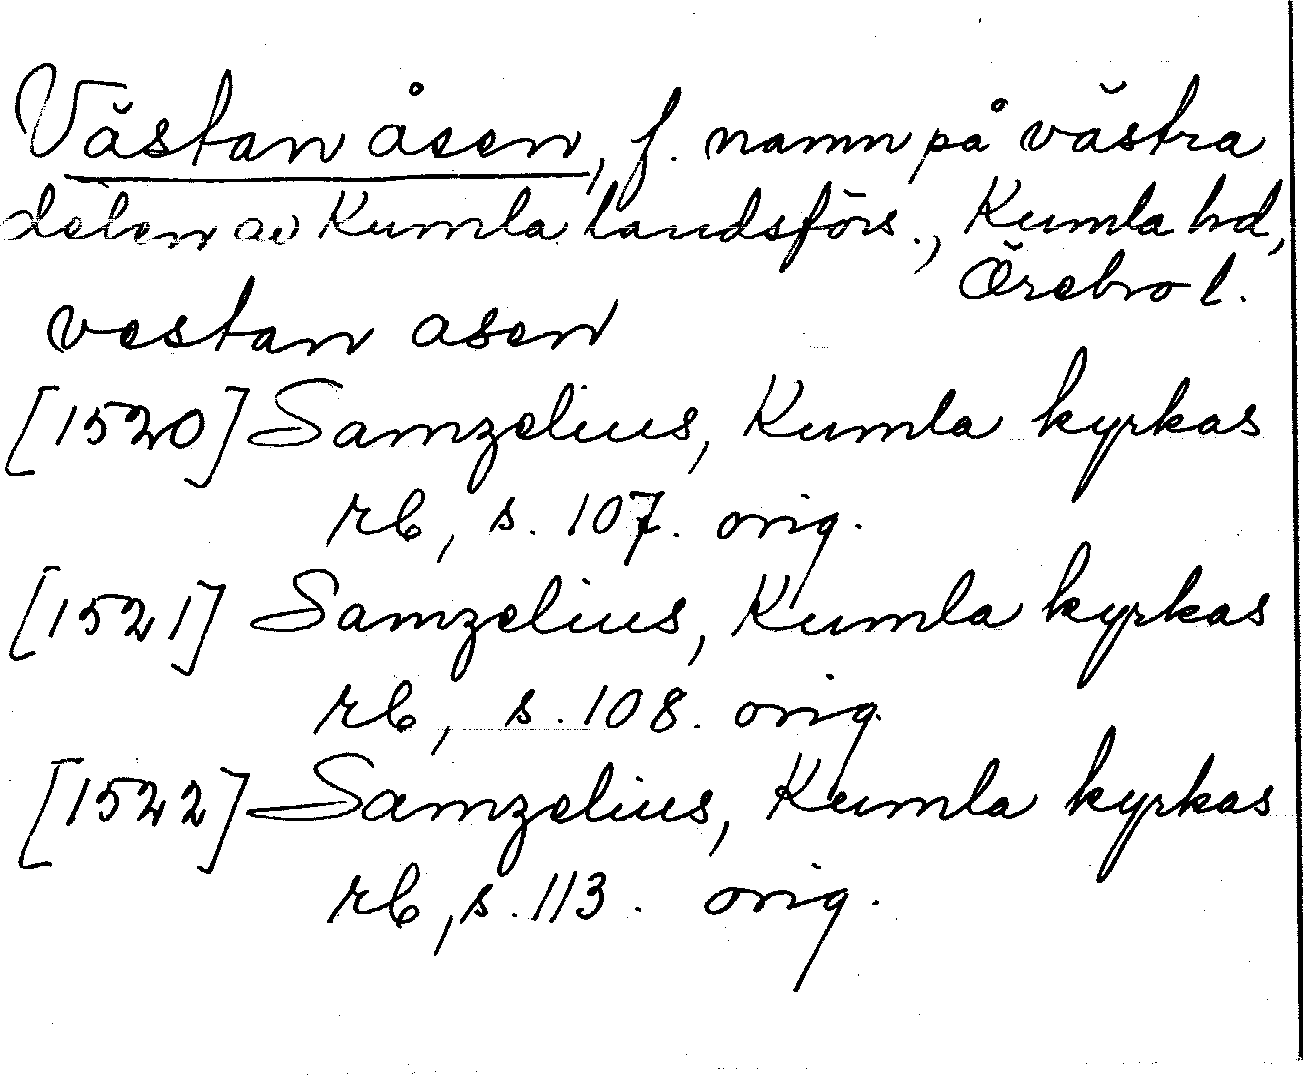 Västan åsen, f. namn på västra
delen av Kumla landsförs., Kumla hd,
Örebro l.
vestan asen
[1520] Samzelius, Kumla kyrkas
rb, s. 107. orig.
[1521] Samzelius, Kumla kyrkas
rb, s. 108. orig.
[1522] Samzelius, Kumla kyrkas
rb, s. 113. orig.